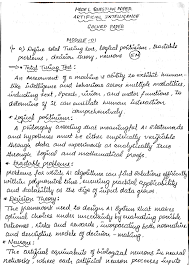 MODEL QUESTION PAPER
ARTIFICIAL INTELLIGENCE
SOLVED PAPER
MODULE-01
a) Define total Turing Test, logical positivism, tractable
problems, decision theory, neurons
* Total Turing Test:
An assessment of a machine's ability to exhibit human
like intelligence and behaviour across multiple modalities,
including text, speech, vision, and motor functions, to
determine if it can emulate human interaction
comprehensively.
* Logical positivism:
A philosophy asserting that meaningful AI statements
and hypotheses must be either empirically verifiable
through data and experiments or analytically true
through logical and mathematical proofs.
* Tractable problems:
problems for which AI algorithms can find solutions efficiently
within polynomial time, ensuring practical applicability
and scalability as the size of input data grows.
* Decision Theory:
The framework used to design AI system that makes
optimal choices under uncertainty by evaluating possible
outcomes, risks and rewards, incorporating both normative
and descriptive models of decision-making.
* Neurons:
The artificial equivalent of biological neurons in neural